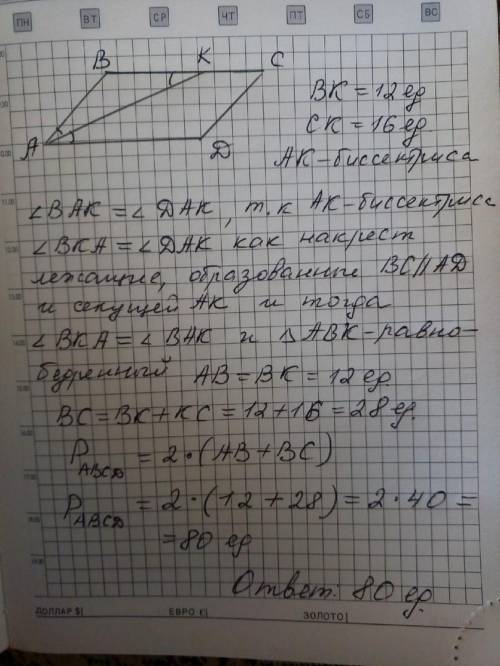 ПН ВТ СР ЧТ ПТ СБ ВС
B K C
A D
BK = 12 ед
CK = 16 ед.
AK-биссектриса
∠BAK = ∠DAK, т.к AK-биссектриса
∠BKA = ∠DAK как накрест
лежащие, образованные BC∥AD
и секущей AK и тогда
∠BKA = ∠BAK и △ABK-равно-
бедренный AB = BK = 12 ед.
BC = BK + KC = 12 + 16 = 28 ед.
P_ABCD = 2·(AB + BC)
P_ABCD = 2·(12 + 28) = 2·40 =
= 80 ед
Ответ: 80 ед.
ДОЛЛАР $| ЕВРО €| ЗОЛОТО|